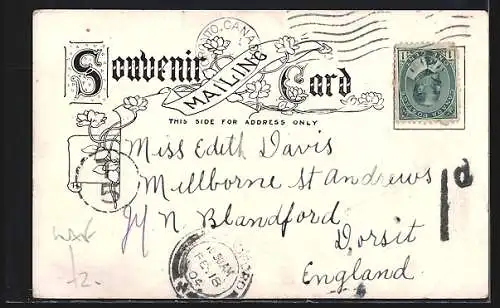 TORONTO, CANADA
Souvenir
MAILING
Card
THIS SIDE FOR ADDRESS ONLY
Miss Edith Davis
Millborne St Andrews
Nr Blandford
Dorsit
England
1d
FE 18
04
12.